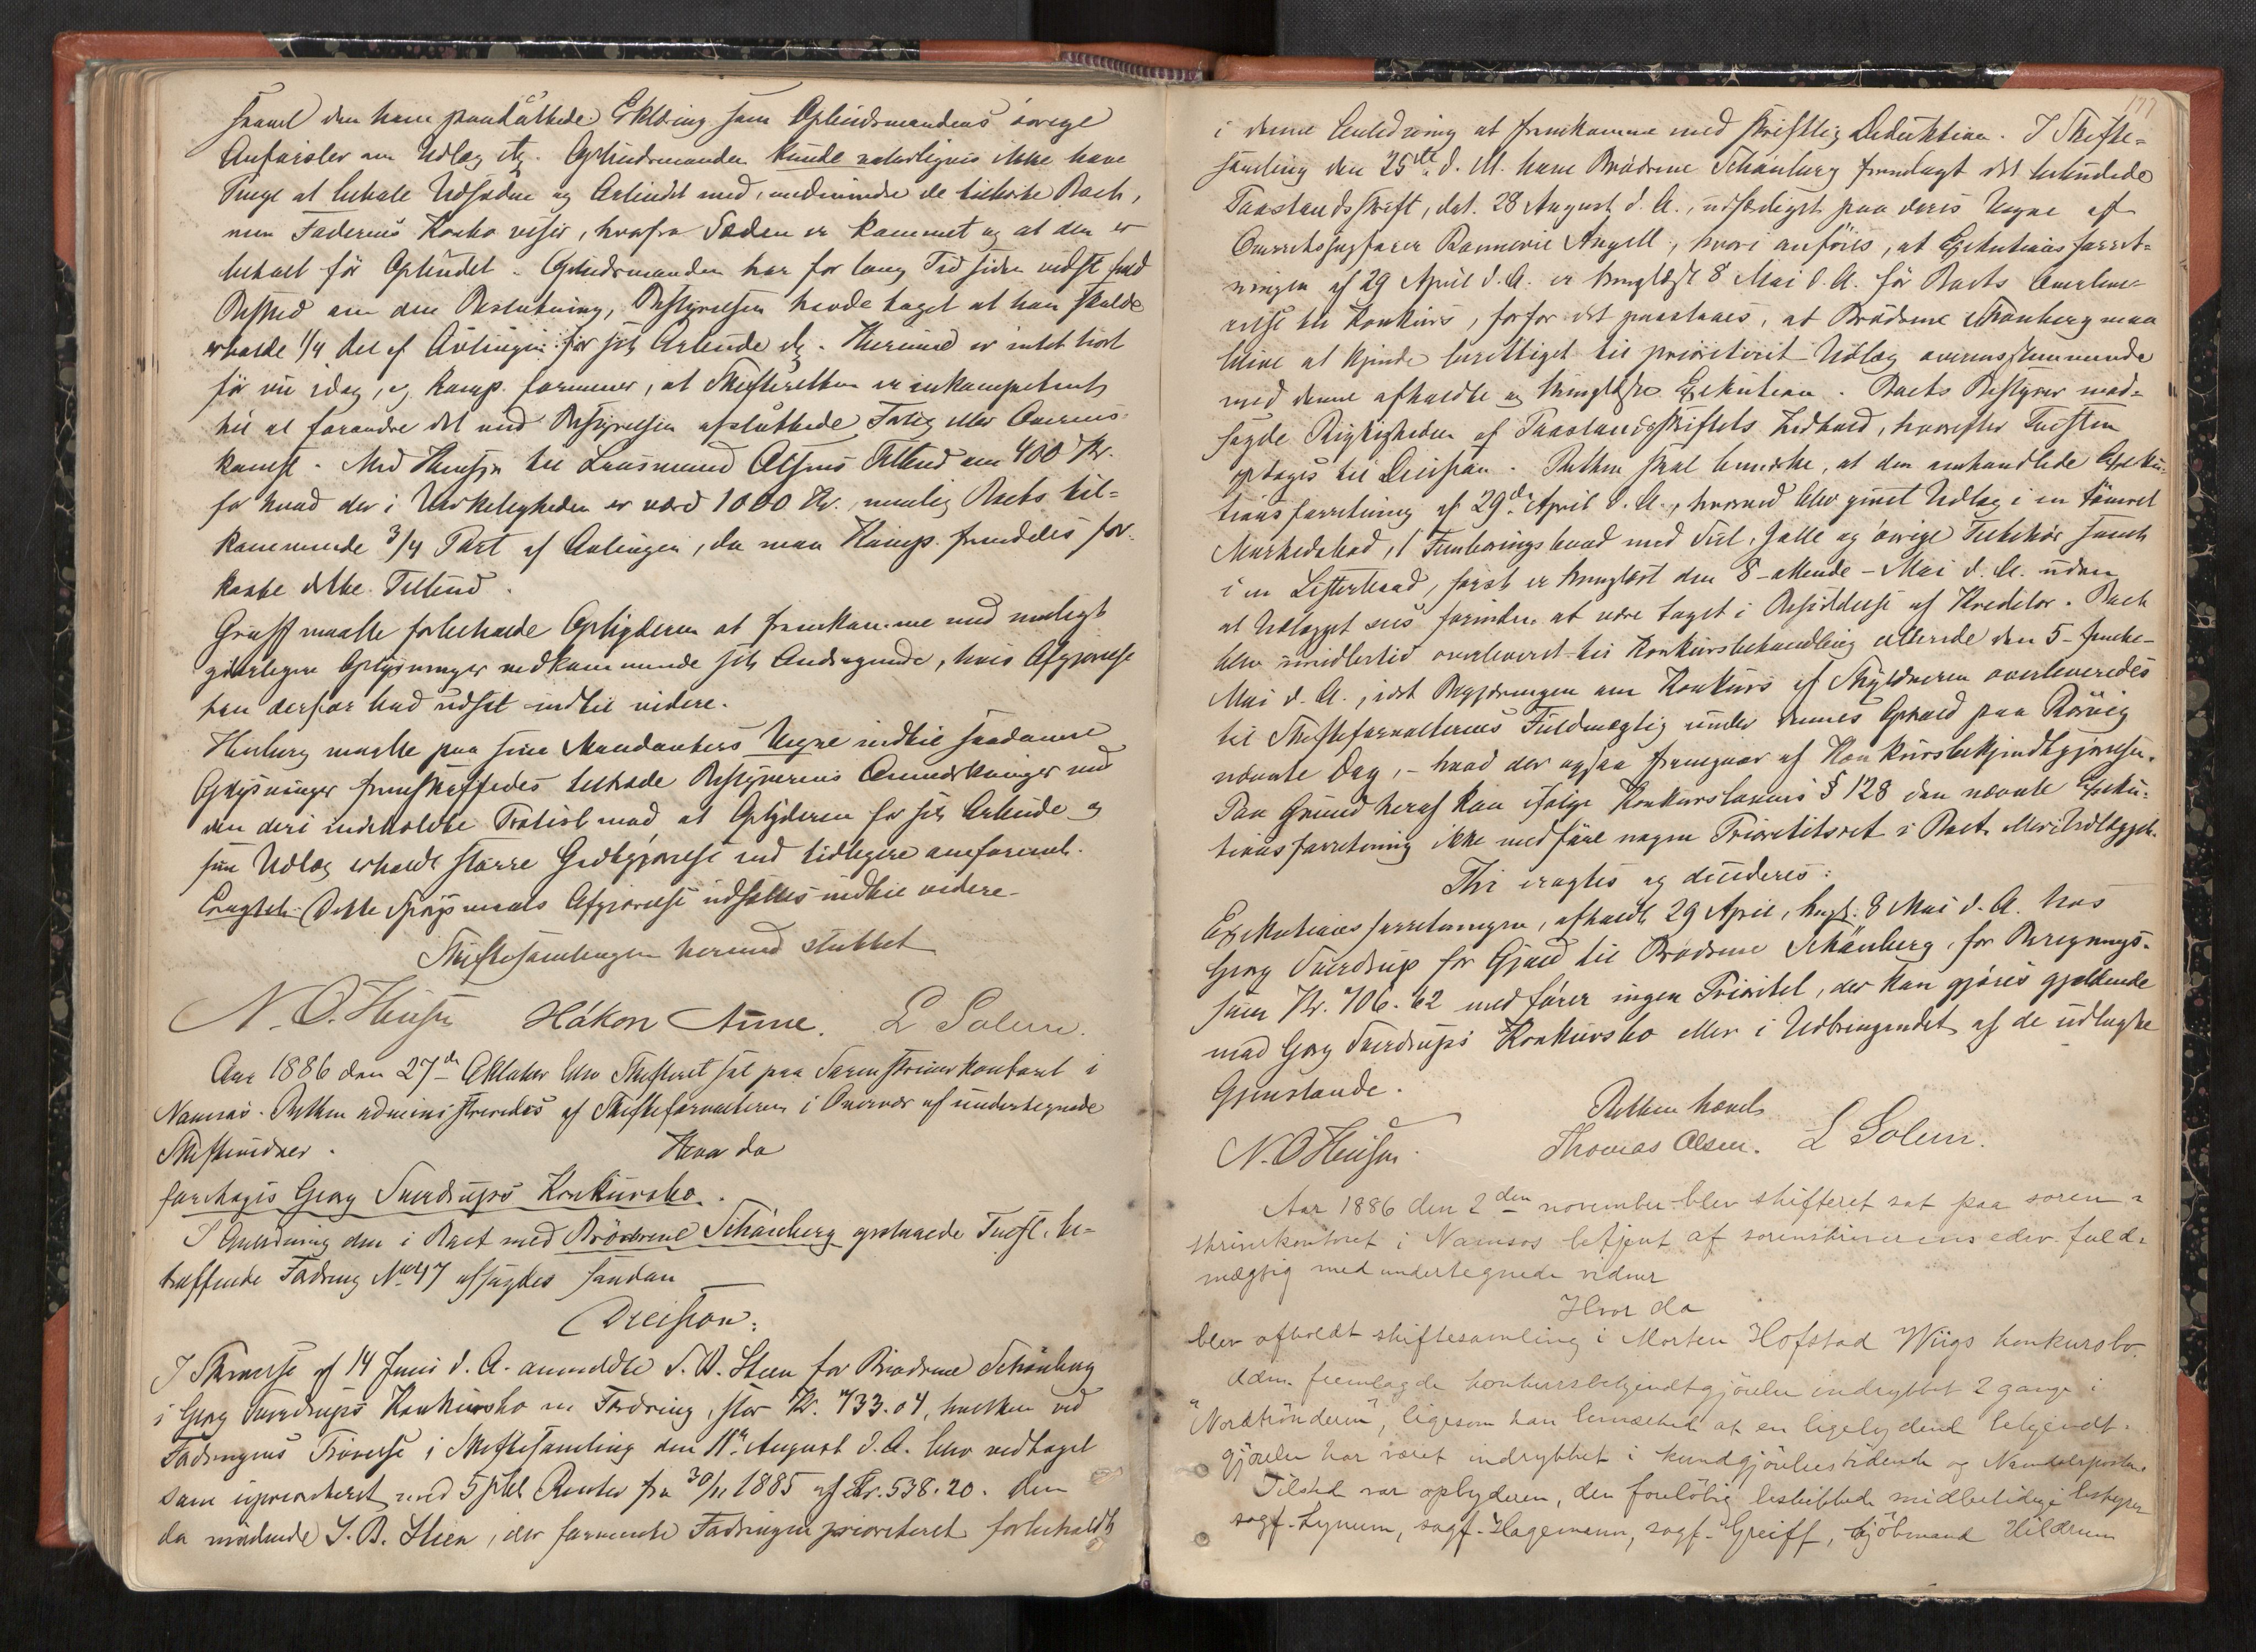 den ham paaduttede Erklæring som Opbudsmandens øvrige
om Udlæg etc. Opbudsmanden kunde naturligvis ikke have
Penge at betale Udsæden og Arbeidet med, medmindre de tilhørte Boet,
men Faderens Konto viser, hvorfra Sæden er kommet og at den er
betalt før Opbudet. Opbudsmanden har for lang Tid siden vidst
Besked om den Beslutning, Bestyrelsen havde taget at han skulde
erholde 1/4 Del af Avlingen for sit Arbeide etc. Herimod er intet hørt
før nu idag, og Komp. formener, at Skifteretten er inkompetent
til at forandre det med Bestyrelsen afsluttede Forlig eller Overens-
komst. Med Hensyn til Lensmand Olsens Tilbud om 400 Kr.
for hvad der i Virkeligheden er værd 1000 Kr., nemlig Boets til-
kommende 3/4 Part af Avlingen, da maa Komp. fremdeles for-
kaste dette Tilbud.
Greiff maatte forbeholde Opbyderen at fremkomme med muligt
yderligere Oplysninger vedkommende sit Andragende, hvis Afgjørelse
han derfor bad udsat indtil videre.
maatte paa sine Mandanters Vegne indtil saadanne
Oplysninger fremskaffedes tiltræde Bestyrerens Anmærkninger med
den deri indeholdte Protest mod, at Opbyderen for sit Arbeide og
sin Udlæg erholdt større Godtgjørelse end tidligere omforenet.
Eragtet: Dette Spørgsmaals Afgjørelse udsættes indtil videre.
Skiftesamlingen hermed sluttet
N. O. Hansen Håkon Aune. L Solem.
Aar 1886 den 27de Oktober blev Skifteret sat paa Sorenskriverkontoret i
Namsos. Retten administreredes af Skifteforvalteren i Overvær af undertegnede
Skiftevidner.
Hvor da
foretoges Georg Sverdrups Konkursbo.
I Anledning den i Boet med Brødrene Schönberg opstaaede Tvist, be-
træffende Fordring No 47 afsagdes saadan
Decision:
I Skrivelse af 14 Juni d. A. anmeldte S. B. Steen for Brødrene Schönberg
i Georg Sverdrups Konkursbo en Fordring, stor Kr. 733.04, hvilken ved
Fordringens Prøvelse i Skiftesamling den 11te August d. A. blev vedtaget
som uprioriteret med 5 pCt Renter fra 30/11 1885 af Kr. 538.20. Den
da mødende S. B. Steen, der formente Fordringen prioriteret forbeholdt
177
i denne Anledning at fremkomme med skriftlig Deduktion. I Skifte-
samling den 25de d. M. have Brødrene Schönberg fremlagt det bebudede
Paastandsskrift, dat. 28 August d. A., udfærdiget paa deres Vegne af
Overretssagfører Angell, hvori anføres, at Exekutionsforret-
ningen af 29 April d. A. er thinglæst 8 Mai d. A. før Boets Overlever-
else til Konkurs, hvorfor det paastaaes, at Brødrene Schönberg maa
blive at kjende berettiget til prioriteret Udlæg overensstemmende
med denne afholdte og thinglæste Exekution. Boets Bestyrer mod-
sagde Rigtigheden af Paastandsskriftets Indhold, hvorefter Tvisten
optages til Decision. Retten skal bemærke, at den omhandlede Exeku-
tionsforretning af 29de April d. A., hvorved blev givet Udlæg i en tømret
Markedsbod, 1 Fembøringsbaad med Seil, Jolle og øvrige Tilbehør samt
i en Listerbaad, først er thinglæst den 8 - ottende - Mai d. A. uden
at Udlægget sees forinden at være taget i Besiddelse af Kreditor. Boet
blev imidlertid overleveret til Konkursbehandling allerede den 5 - femte -
Mai d. A., idet Begjæringen om Konkurs af Skyldneren overleveredes
til Skifteforvalterens Fuldmægtig under dennes Ophold paa Rørvig
nævnte Dag, - hvad der ogsaa fremgaar af Konkursbekjendtgjørelsen.
Paa Grund heraf kan ifølge Konkurslovens § 128 den nævnte Exeku-
tionsforretning ikke medføre nogen Prioritetsret i Boet eller i Udlægget.
Thi eragtes og decideres:
Exekutionsforretningen, afholdt 29 April, thingl. 8 Mai d. A. hos
Georg Sverdrup for Gjæld til Brødrene Schönberg, for Beregnings-
sum Kr. 706.62 medfører ingen Prioritet, der kan gjøres gjældende
mod Georg Sverdrups Konkursbo eller i Udbringendet af de udlagte
Gjenstande.
Retten hævet
N. O. Hansen. Thomas Olsen. L Solem.
Aar 1886 den 2den november blev skifteret sat paa soren-
skriverkontoret i Namsos betjent af sorenskriverens edsv. fuld-
mægtig med undertegnede vidner
Hvor da
blev afholdt skiftesamling i Morten Hofstad Wiigs konkursbo.
Adm. fremlagde konkursbekjendtgjørelse indrykket 2 gange i
"Nordtrønderen", ligesom han bemærkede at en ligelydende bekjendt-
gjørelse har været indrykket i kundgjørelsestidende og Namdalsposten.
Tilstede var opbyderen, den foreløbig beskikkede midlertidige bestyrer
sagf. Lynum, sagf. Hagemann, sagf. Greiff, kjøbmand Hildrum